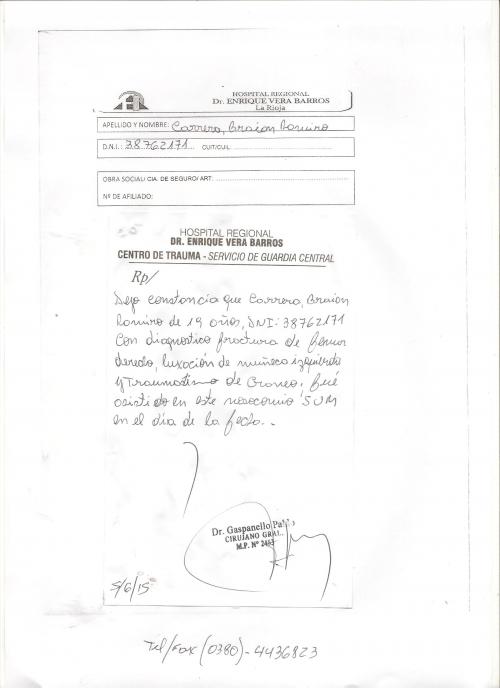 HOSPITAL REGIONAL
Dr. ENRIQUE VERA BARROS
La Rioja
APELLIDO Y NOMBRE: Carrera, Braion Ramiro
D.N.I.: 38762171 CUIT/CUIL:
OBRA SOCIAL/ CIA. DE SEGURO/ ART:
Nº DE AFILIADO:
HOSPITAL REGIONAL
DR. ENRIQUE VERA BARROS
CENTRO DE TRAUMA - SERVICIO DE GUARDIA CENTRAL
Rp/
Dejo constancia que Carrera, Braion
Ramiro de 19 años, DNI: 38762171
Con diagnostico fractura de femur
derecho, luxación de muñeca izquierda
y Traumatismo de Craneo, fué
asistido en este nosocomio
en el día de la fecha.
Dr. Gaspanello Pablo
CIRUJANO GRAL.
M.P. Nº 2463
5/6/15
Tel/Fax (0380)-4436823